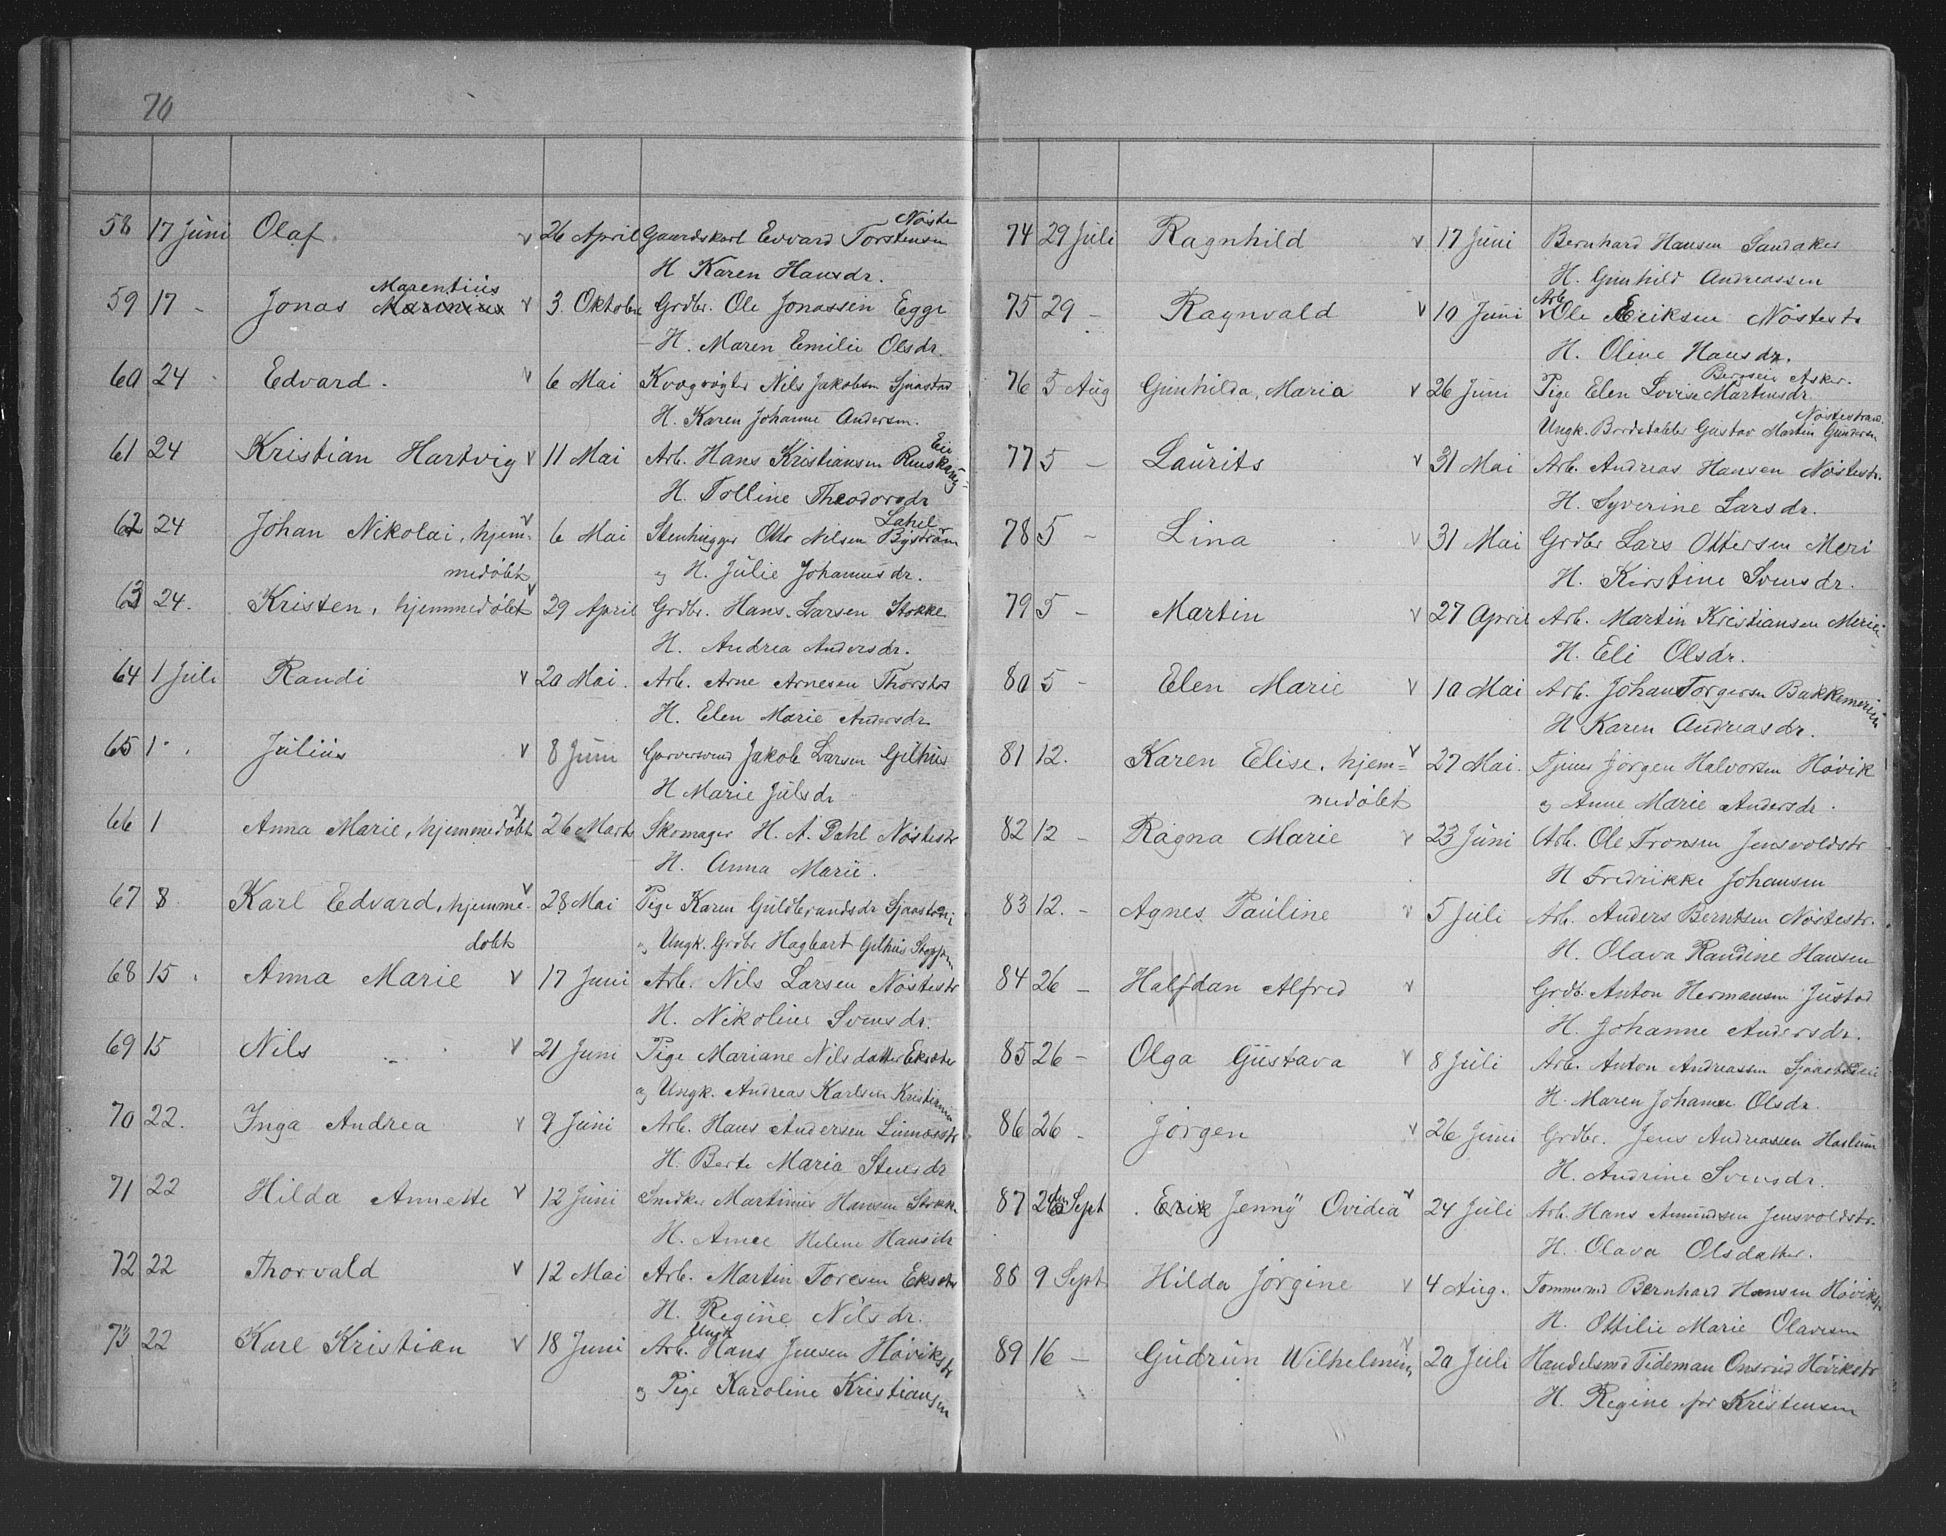 70
58 17 Juni Olaf v 26 April Gaardskarl Edvard Torstensen Nøste
H Karen Hansdr.
59 17 - Jonas Marinius Marentius v 3. Oktober Grdbr. Ole Jonassen Egge
H. Maren Emilie Olsdr.
60 24 Edvard. v 6 Mai Kvægrøgter Nils Jakobsen Sjaastad
H. Karen Johanne Andersen.
61 24 Kristian Hartvig v 11 Mai Arb. Hans Kristiansen
H. Tolline Theodorsdr
62 24 Johan Nikolai, hjem= v 6 Mai Stenhugger Otto Nilsen Bystrøm Lahel
medøbt og H. Julie Johannesdr.
63 24. Kristen, hjemmedøbt v 29 April Grdbr. Hans Larsen Stokke
H. Andrea Andersdr.
64 1 Juli Randi v 20 Mai. Arb. Arne Arnesen
H. Elen Marie Andersdr
65 1 Julius v 8 Juni Garversvend Jakob Larsen Gilhus
H Marie Julsdr
66 1 Anna Marie, hjemmedøbt v 26 Marts Skomager H. A. Dahl Nøstestr
H. Anna Marie.
67 8 Karl Edvard, hjemme= v 28 Mai Pige Karen Guldbrandsdr
døbt og Ungk. Grdbr Hagbart Gilhus
68 15 Anna Marie v 17 Juni Arb. Nils Larsen Nøstestr
H. Nikoline Svensdr.
69 15 Nils v 21 Juni Pige Mariane Nilsdatter Eksæter
og Ungk. Andreas Karlsen
70 22. Inga Andrea v 9 Juni Arb. Hans Andersen Linnesstr
H. Berte Maria Stensdr
71 22 Hilda Annette v 12 Juni Snedker Martinius Hansen
H. Helene Hansdr
72 22 Thorvald v 12 Mai Arb. Martin Toresen
H. Regine Nilsdr.
73 22 Karl Kristian v 18 Juni Arb. Ungk Hans Jensen Høvikstr
og Pige Karoline Kristiansen
74 29 Juli Ragnhild v 17 Juni Bernhard Hansen Sandaker
H. Gunhild Andreassen
75 29 - Ragnvald v 10 Juni Arb. Ole Eriksen Nøstestr
H. Oline Hansdr.
76 5 Aug Gunhilda, Maria v 26 Juni Pige Elen Lovise Martinsdr Asker.
Ungk. Gustav Martin Gundersen Nøstestrand
77 5 - Laurits v 31 Mai Arb. Andreas Hansen Nøstestr.
H. Syverine Larsdr.
78 5 - Lina v 31 Mai Grdbr Lars Ottersen Meri
H. Kirstine Svensdr.
79 5 - Martin v 27 April Arb. Martin Kristiansen
H. Eli Olsdr.
80 5 - Elen Marie v 10 Mai Arb. Johan Torgersen
H Karen Andreasdr.
81 12. Karen Elise, hjem= v 27 Mai. Tjener Jørgen Halvorsen Høvik
medøbt og Anne Marie Andersdr.
82 12 - Ragna Marie v 23 Juni Arb. Ole Tronsen Jensvoldstr
H Fredrikke Johansen
83 12. - Agnes Pauline v 5 Juli Arb. Anders Berntsen Nøstestr.
H. Olava Randine Hansen
84 26 - Halfdan Alfred v Grdb. Anton Hermansen Justad
H. Johanne Andersdr.
85 26 - Olga Gustava v 8 Juli Arb. Anton Andreassen
H. Maren Johanne Olsdr.
86 26 - Jørgen v 26 Juni Grdbr. Jens Andreassen Haslum
H. Andrine Svensdr.
87 2den Sept Erik Jenny Ovidia v 24 Juli Arb. Hans Amundsen Jensvoldstr.
H. Olava Olsdatter.
88 9 Sept Hilda Jørgine v 4 Aug. Tømmermd Bernhard Hansen Høvikstr
H. Ottilie Marie Olavesen
89 16 - Gudrun Wilhelmine v 20 Juli Handelsmd Tideman Onsrud Høvikstr
H. Regine før Kristensen